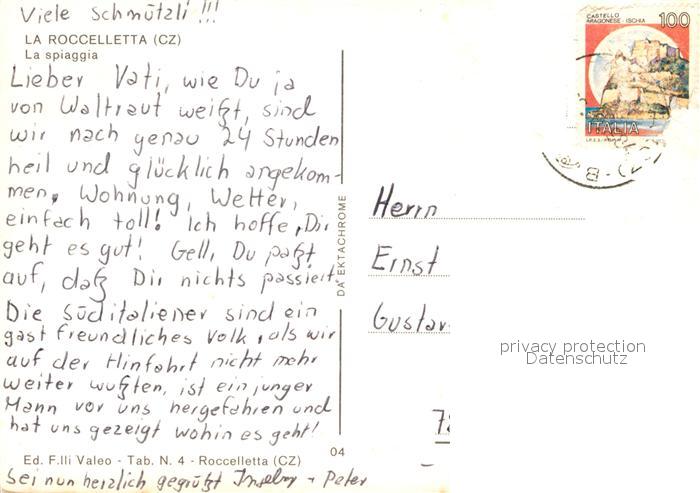 Viele Schmützli !!!
LA ROCCELLETTA (CZ)
La spiaggia
Lieber Vati, wie Du ja
von Waltraut weißt, sind
wir nach genau 24 Stunden
heil und glücklich angekom-
men, Wohnung, Wetter,
einfach toll! Ich hoffe, Dir
geht es gut! Gell, Du paßt
auf, daß Dir nichts passiert.
Die Süditaliener sind ein
gastfreundliches Volk, als wir
auf der Hinfahrt nicht mehr
weiter wußten, ist ein junger
Mann vor uns hergefahren und
hat uns gezeigt wohin es geht!
Ed. F.lli Valeo - Tab. N. 4 - Roccelletta (CZ)
04
Sei nun herzlich gegrüßt + Peter
DA EKTACHROME
CASTELLO
ARAGONESE - ISCHIA
100
ITALIA
Herrn
Ernst
Gustav
privacy protection
Datenschutz